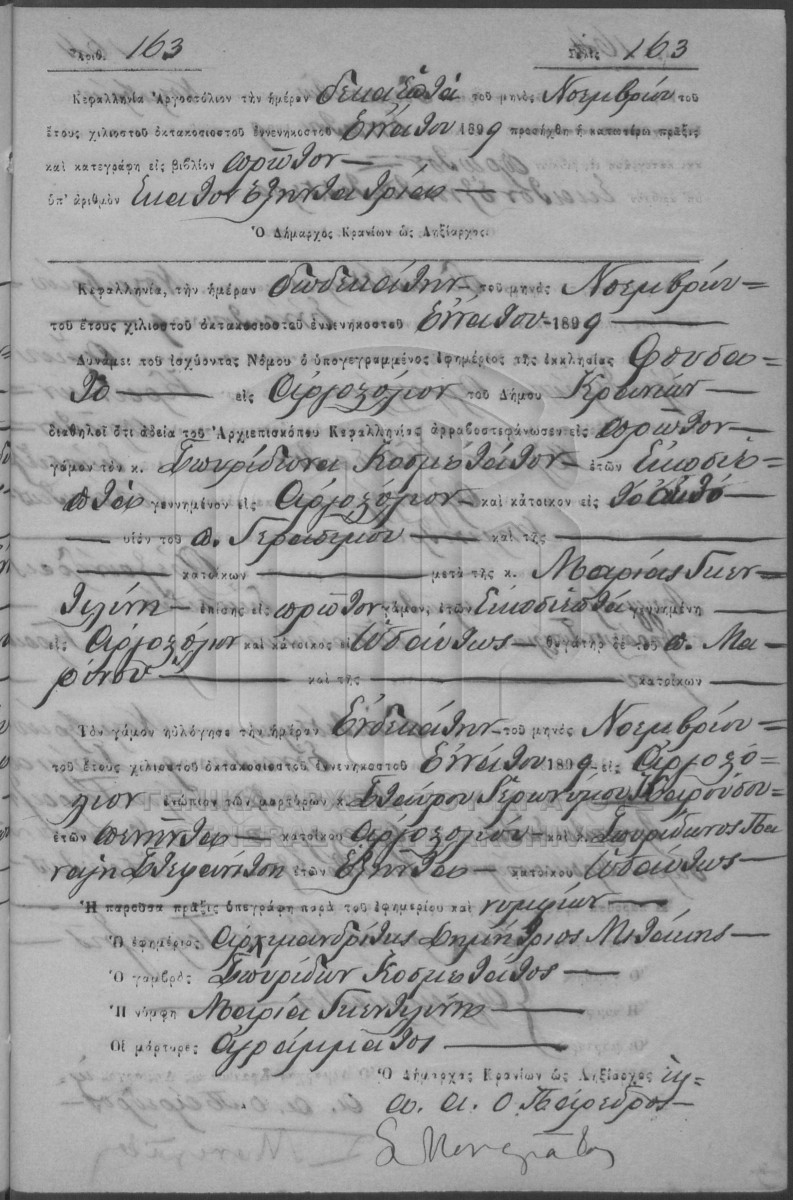 Ἀριθ. 163 Σελὶς 163
Κεφαλληνία Ἀργοστόλιον τὴν ἡμέραν δεκαεπτά τοῦ μηνὸς Νοεμβρίου τοῦ
ἔτους χιλιοστοῦ ὀκτακοσιοστοῦ ἐννενηκοστοῦ Ἐννάτου 1899 προσήχθη ἡ κατωτέρω πρᾶξις
καὶ κατεγράφη εἰς βιβλίον πρῶτον
ὑπ' ἀριθμὸν Ἑκατὸν ἑξήντα τρία
Ὁ Δήμαρχος Κρανίων ὡς Ληξίαρχος.
Κεφαλληνία, τὴν ἡμέραν δωδεκάτην τοῦ μηνὸς Νοεμβρίου
τοῦ ἔτους χιλιοστοῦ ὀκτακοσιοστοῦ ἐννενηκοστοῦ Ἐννάτου 1899
Δυνάμει τοῦ ἰσχύοντος Νόμου ὁ ὑπογεγραμμένος ἐφημέριος τῆς ἐκκλησίας
εἰς Ἀργοστόλιον τοῦ Δήμου Κρανίων
διαθηλοῖ ὅτι ἀδεία τοῦ Ἀρχιεπισκόπου Κεφαλληνίας ἀρραβοστεφάνωσεν εἰς πρῶτον
γάμον τὸν κ. Σπυρίδωνα Κοσμετάτον ἐτῶν Εἰκοσιε-
πτά γεννημένον εἰς Ἀργοστόλιον καὶ κάτοικον εἰς τὸ αὐτό
υἱὸν τοῦ π. Γερασίμου καὶ τῆς
κατοίκων μετὰ τῆς κ. Μαρίας Γκεν-
τιλίνη ἐπίσης εἰς πρῶτον γάμον, ἐτῶν Εἰκοσιεπτά γεννημένη
εἰς Ἀργοστόλιον καὶ κάτοικος εἰς Ὡσαύτως θυγάτηρ δὲ τοῦ π. Μα-
ρίνου καὶ τῆς κατοίκων
Τὸν γάμον ηὐλόγησε τὴν ἡμέραν Ἑνδεκάτην τοῦ μηνὸς Νοεμβρίου
τοῦ ἔτους χιλιοστοῦ ὀκτακοσιοστοῦ ἐννενηκοστοῦ Ἐννάτου 1899 εἰς Ἀργοστό-
λιον ἐνώπιον τῶν μαρτύρων κ. Σταύρου Γερωνύμου
ἐτῶν πενῆντα κατοίκου Ἀργοστολίου καὶ κ. Σπυρίδωνος Πα
ναγῆ Στεφανίτση ἐτῶν Ἑξῆντα κατοίκου Ὡσαύτως
Ἡ παροῦσα πρᾶξις ὑπεγράφη παρὰ τοῦ ἐφημερίου καὶ νυμφίων
Ὁ ἐφημέριος Ἀρχιμανδρίτης Δημήτριος
Ὁ γαμβρὸς Σπυρίδων Κοσμετάτος
Ἡ νύμφη Μαρία Γκεντιλίνη
Οἱ μάρτυρες ἀγράμματοι
Ὁ Δήμαρχος Κρανίων ὡς Ληξίαρχος
α. α. ὁ Πάρεδρος